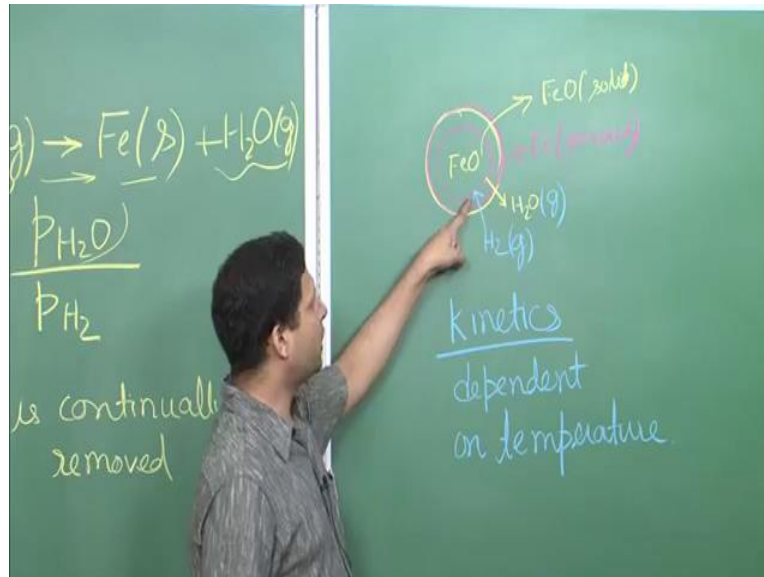 g) → Fe(s) + H₂O(g)
pH₂O
pH₂
is continuall
removed
FeO (solid)
FeO
H₂O(g)
H₂(g)
kinetics
dependent
on temperature.